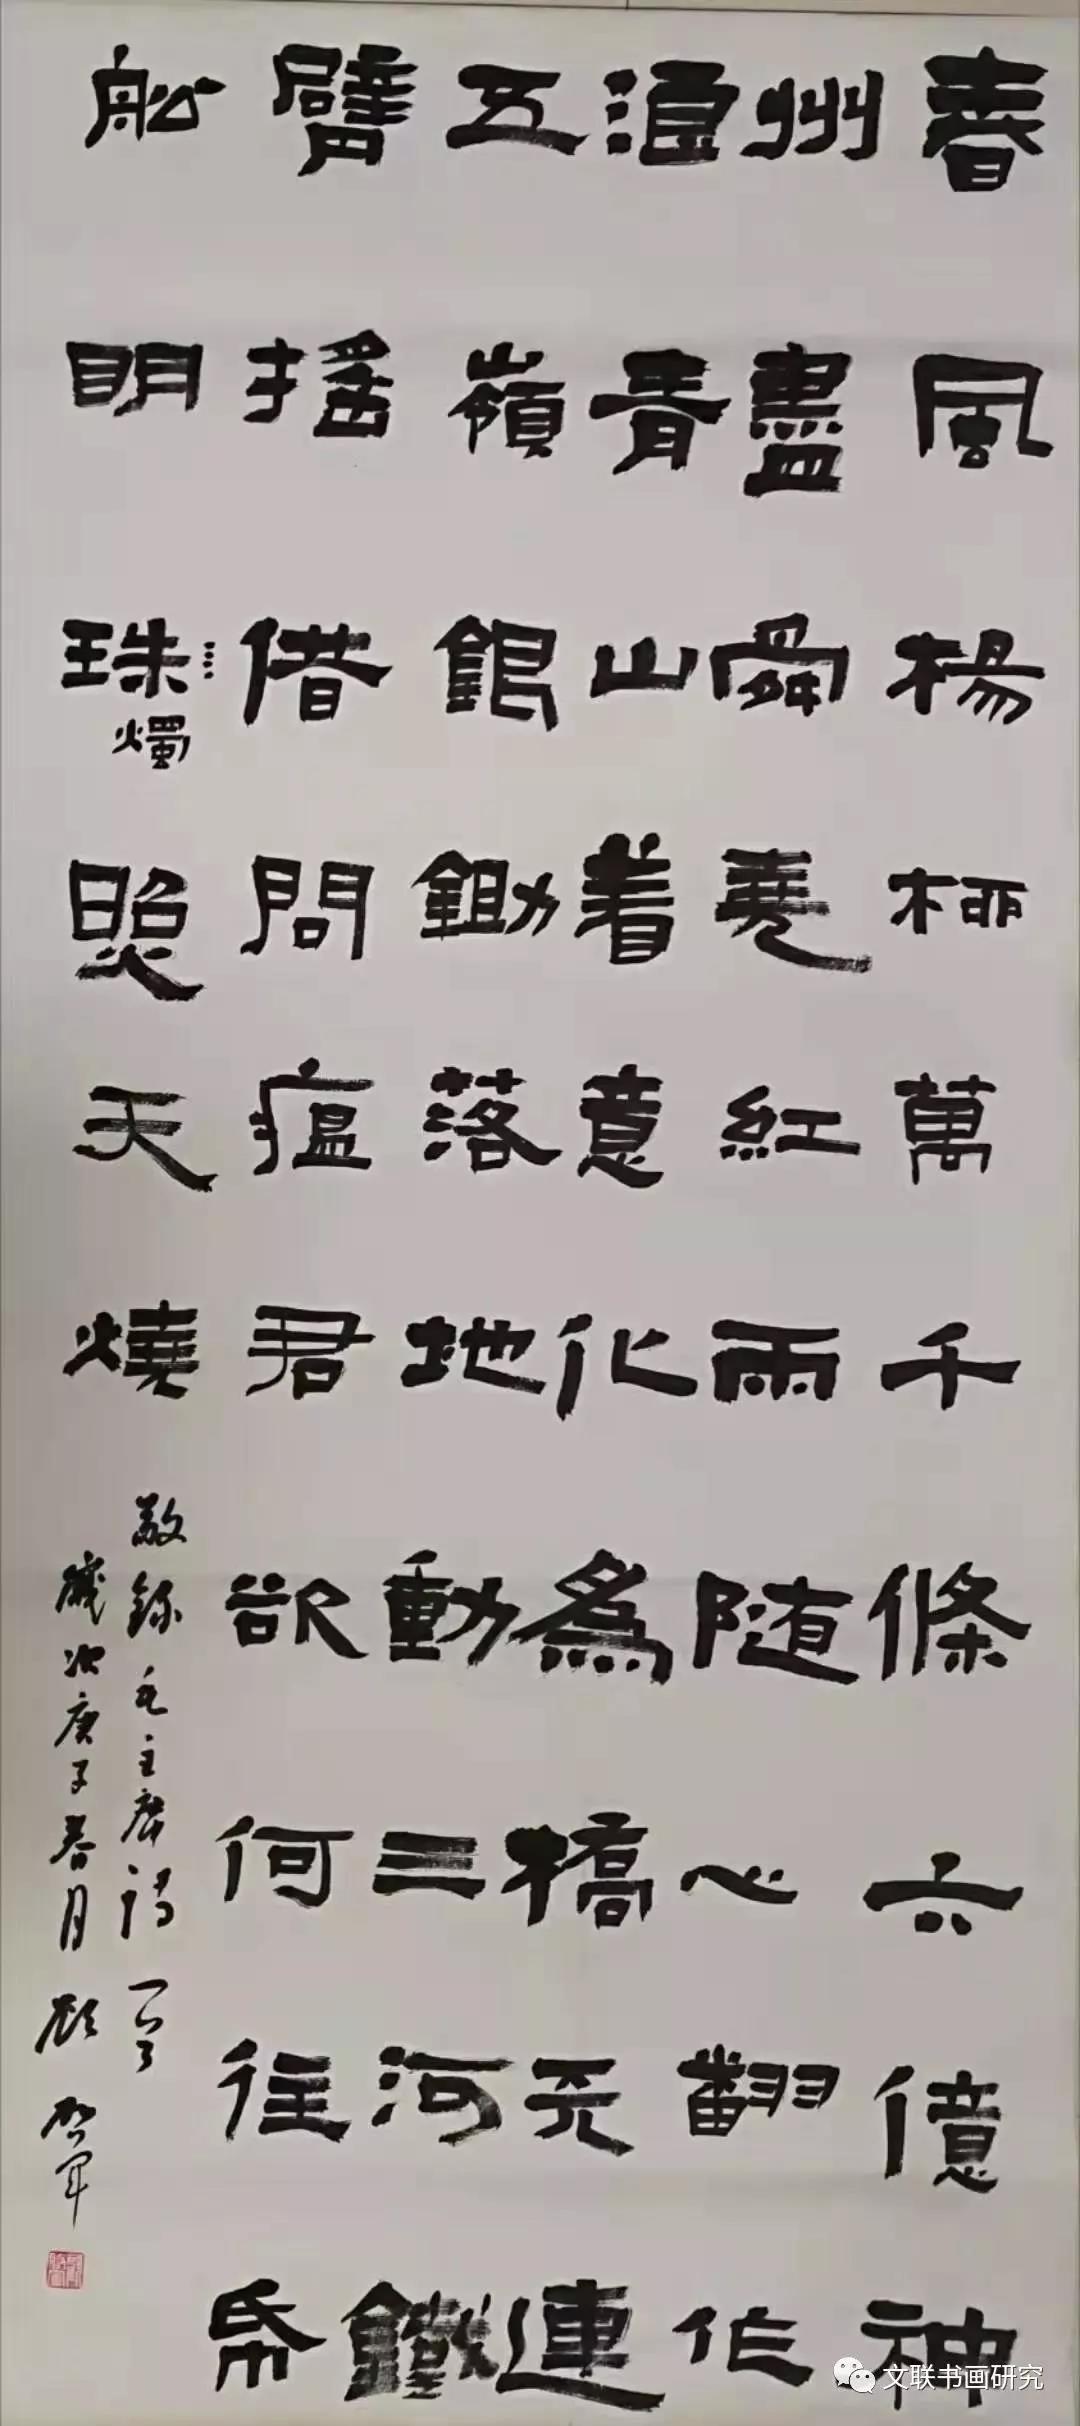 春風楊柳萬千條六億神
州盡舜堯紅雨随心翻作
浪青山着意化為橋天連
五嶺銀鋤落地動三河鐵
臂搖借問瘟君欲何往帋
舩明珠照天燒
燭
敬錄毛主席詩一首
歲次庚子春月
文联书画研究